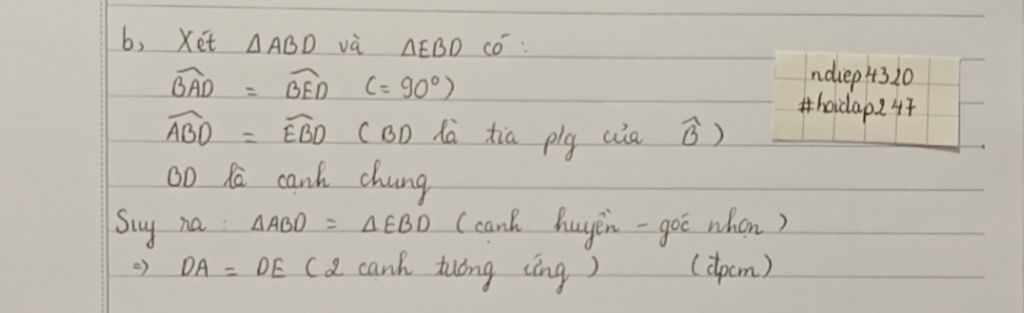 b, Xét ΔABD và ΔEBD có :
B̂AD = B̂ED (= 90°)
ÂBD = ÊBD ( BD là tia p/g của B̂ )
BD là cạnh chung
Suy ra : ΔABD = ΔEBD ( cạnh huyền - góc nhọn )
=> DA = DE ( 2 cạnh tương ứng ) (đpcm)
ndiep4320
#hoidap247